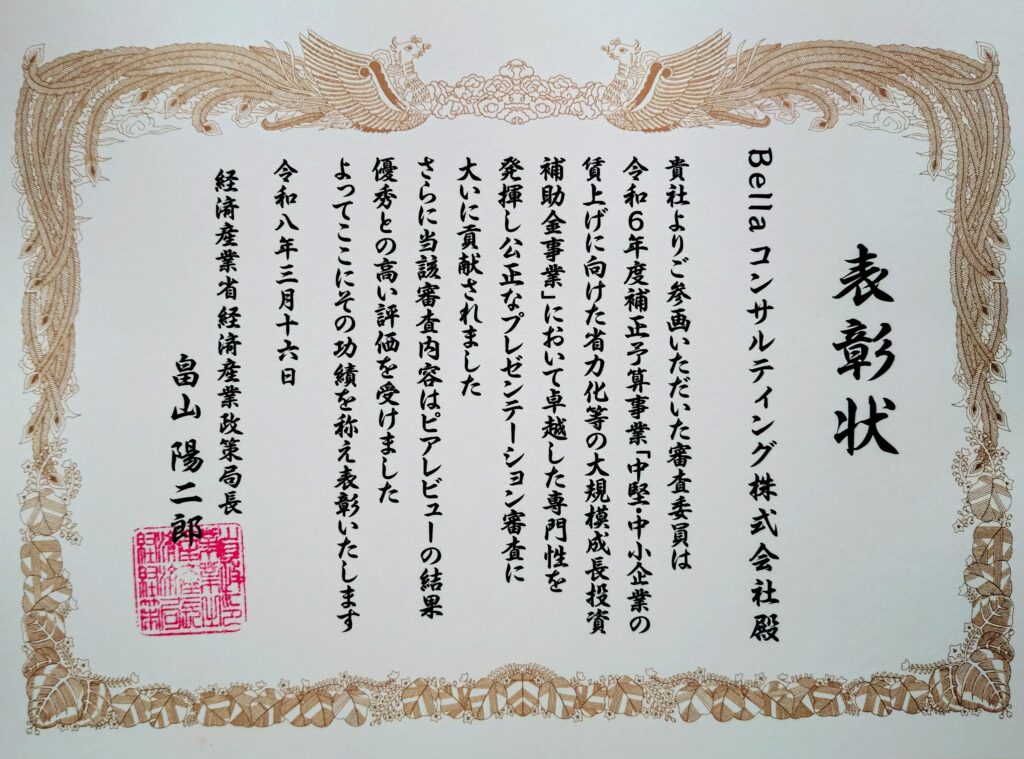 表彰状
Bella コンサルティング株式会社殿
貴社よりご参画いただいた審査委員は
令和6年度補正予算事業「中堅・中小企業の
賃上げに向けた省力化等の大規模成長投資
補助金事業」において卓越した専門性を
発揮し公正なプレゼンテーション審査に
大いに貢献されました
さらに当該審査内容はピアレビューの結果
優秀との高い評価を受けました
よってここにその功績を称え表彰いたします
令和八年三月十六日
経済産業省経済産業政策局長
畠山 陽二郎